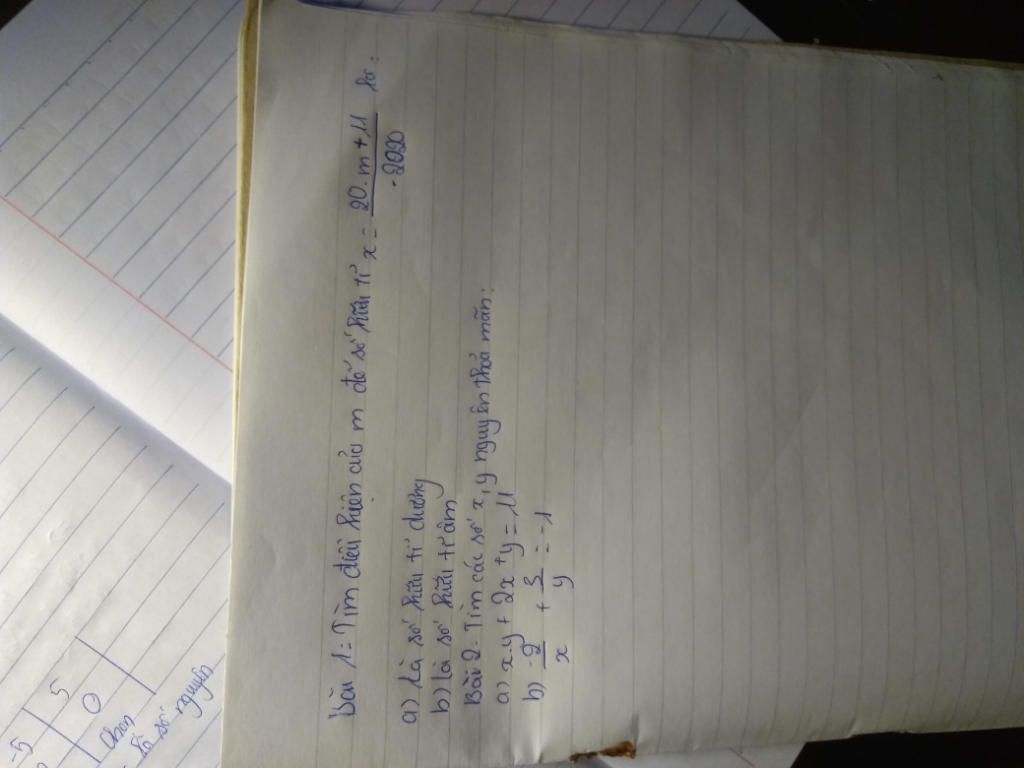 Bài 1: Tìm điều kiện của m để số hữu tỉ x = \frac{20.m+11}{-2020} là:
a) Là số hữu tỉ dương
b) là số hữu tỉ âm
Bài 2: Tìm các số x, y nguyên thoả mãn:
a) xy + 2x + y = 11
b) \frac{-2}{x} + \frac{3}{y} = -1
-5
5
0
là số nguyên